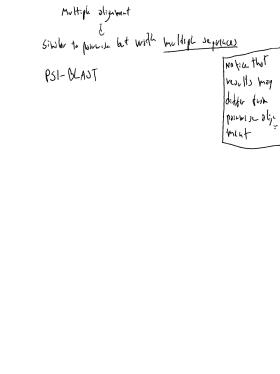 Multiple alignment
similar to pairwise but with multiple sequences
PSI-BLAST
notice that
results may
differ from
pairwise align
ment